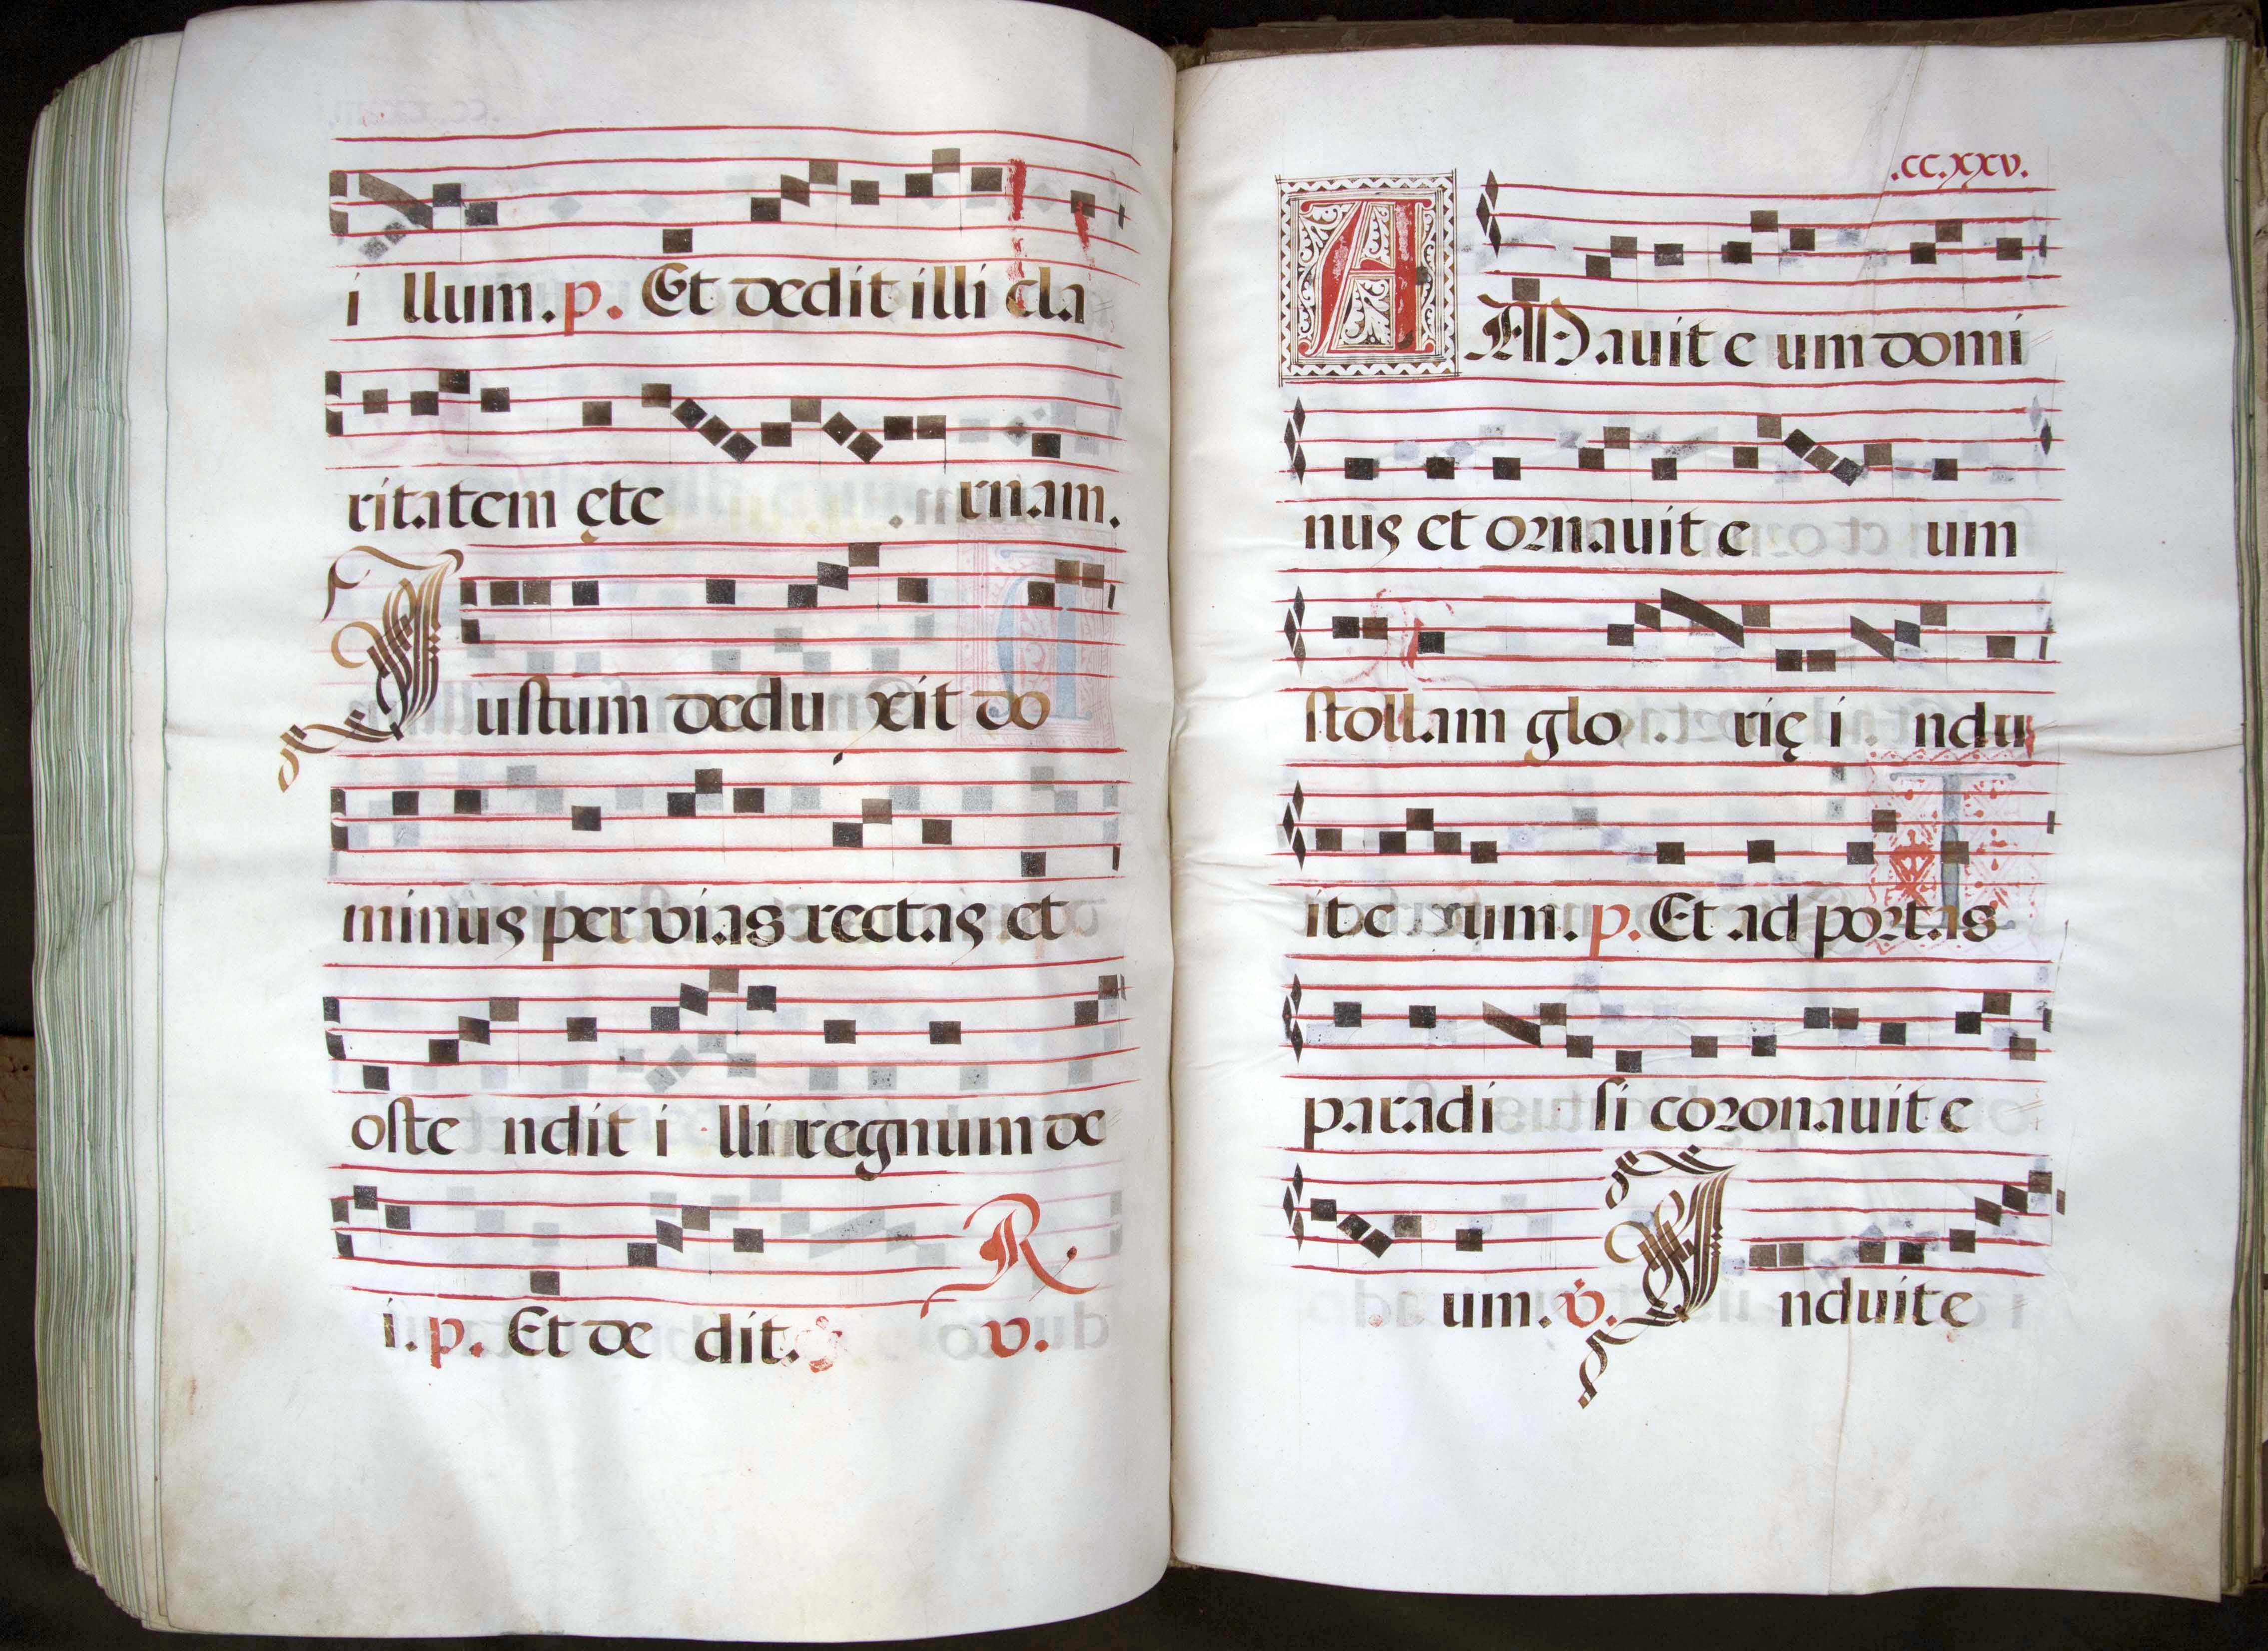 i llum. p. Et dedit illi cla
ritatem ęte rnam.
Justum dedu xit do
minus per vias rectas et
oste ndit i lli regnum de
i. p. Et de dit. R v.
.cc.xxv.
AMavit e um domi
nus et ornavit e um
stollam glo rię i ndu
it e um. p. Et ad portas
paradi si coronavit e
um. v. Jnduit e